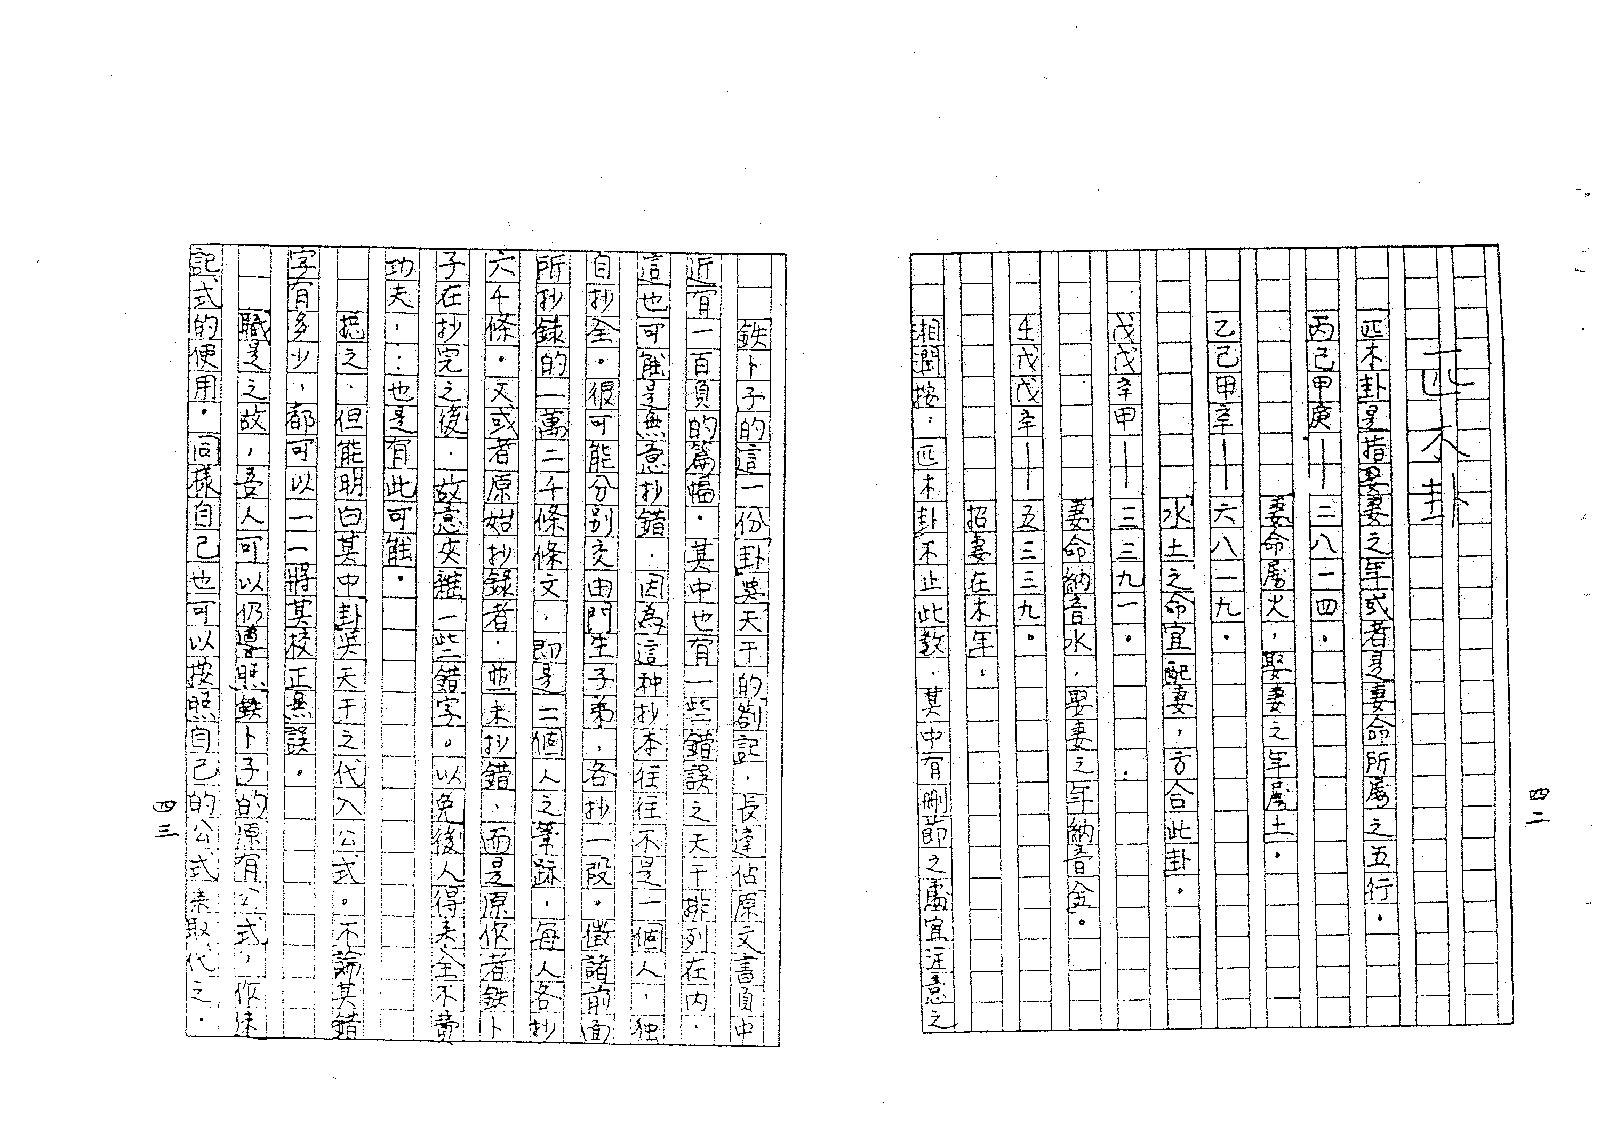 匹木卦
匹木卦是指娶妻之年或者是妻命所屬之五行。
丙己甲庚——二八一四。
妻命屬火，娶妻之年屬土。
乙己甲辛——六八一九。
水土之命宜配妻，方合此卦。
戊戊辛甲——三三九一。
妻命納音水，娶妻之年納音金。
壬戊戊辛——五三三九。
招妻在木年。
湘潤按，匹木卦不止此数，其中有刪節之處宜注意之
四二
鉄卜子的這一份卦與天干的劄記，長達佔原文書頁中
近有一百頁的篇幅。其中也有一些錯誤之天干排列在內，
這也可能是無意抄錯，因為這种抄本往往不是一個人，独
自抄全。很可能分别交由門生子弟，各抄一段。徵諸前面
所抄錄的一萬二千條條文，即是二個人之筆跡，每人各抄
六千條。又或者原始抄錄者，並未抄錯，而是原作者鉄卜
子在抄完之後，故意夾雜一些錯字。以免後人得來全不費
功夫，：也是有此可能。
摠之，但能明白其中卦與天干之代入公式。不論其錯
字有多少，都可以一一將其校正無誤。
職是之故，吾人可以仍遵照鉄卜子的原有公式，作速
記式的使用。同樣自己也可以按照自己的公式來取代之。
四三